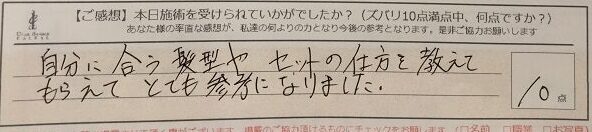 【ご感想】本日施術を受けられていかがでしたか？（ズバリ10点満点中、何点ですか？）
あなた様の率直な感想が、私達の何よりの力となり今後の参考となります。是非ご協力お願いします
自分に合う髪型や セットの仕方を教えて
もらえて とても参考になりました.
10点
掲載のご協力頂けるものにチェックをお願いします